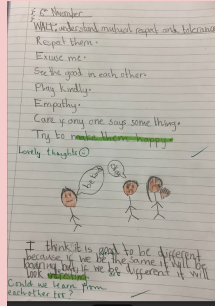 6th November
WALT: understand mutual respect and tolerance
Respect them.
Excuse me.
See the good in each other.
Play kindly.
Empathy.
Care if any one says some thing.
Try to make them happy
Lovely thoughts
I think it is good to be different
because if we be the same it will be
boring but if we be different it will
look
Could we learn from
each other too?